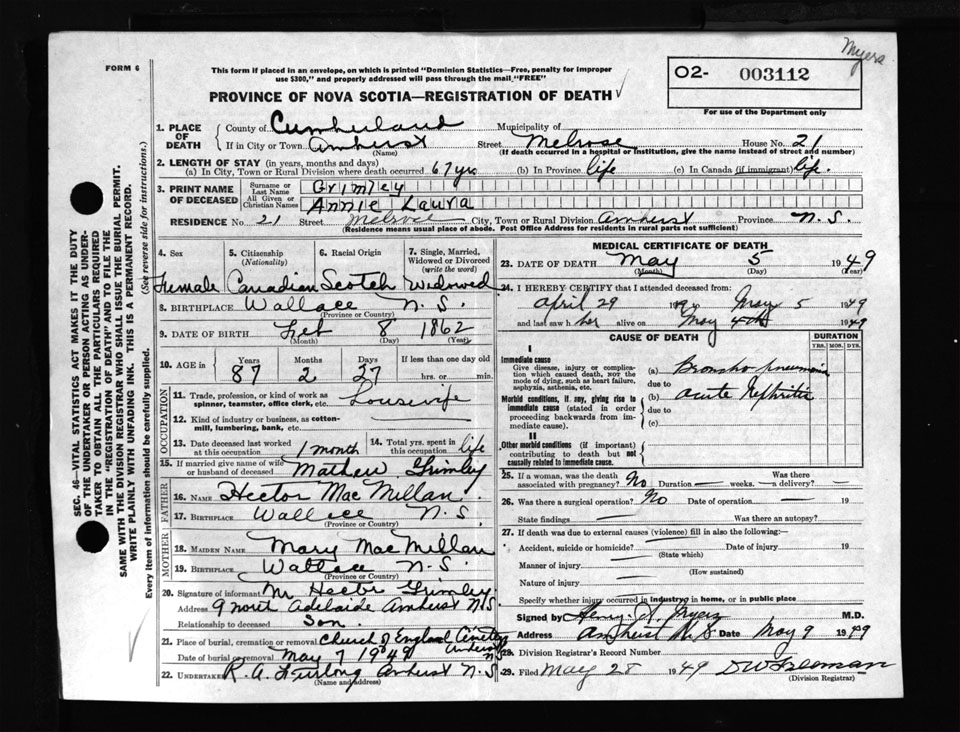 Myers
FORM 6
This form if placed in an envelope, on which is printed "Dominion Statistics—Free, penalty for improper
use $300," and properly addressed will pass through the mail "FREE"
PROVINCE OF NOVA SCOTIA—REGISTRATION OF DEATH
O2- 003112
For use of the Department only
1. PLACE OF DEATH
County of Cumberland Municipality of
If in City or Town Amherst Street Melrose House No. 21
(Name) (If death occurred in a hospital or institution, give the name instead of street and number)
2. LENGTH OF STAY (in years, months and days)
(a) In City, Town or Rural Division where death occurred 67 yrs (b) In Province life (c) In Canada (if immigrant) life.
3. PRINT NAME OF DECEASED
Surname or Last Name Grimley
All Given or Christian Names Annie Laura
RESIDENCE No. 21 Street Melrose City, Town or Rural Division Amherst Province N.S.
(Residence means usual place of abode. Post Office Address for residents in rural parts not sufficient)
4. Sex 5. Citizenship (Nationality) 6. Racial Origin 7. Single, Married, Widowed or Divorced (write the word)
Female Canadian Scotch Widowed
8. BIRTHPLACE Wallace N.S.
(Province or Country)
9. DATE OF BIRTH Feb 8 1862
(Month) (Day) (Year)
10. AGE in Years Months Days If less than one day old
87 2 27 hrs. or min.
OCCUPATION
11. Trade, profession, or kind of work as spinner, teamster, office clerk, etc. Housewife
12. Kind of industry or business, as cotton-mill, lumbering, bank, etc. —
13. Date deceased last worked at this occupation 1 month 14. Total yrs. spent in this occupation life
15. If married give name of wife or husband of deceased Mathew Grimley
FATHER
16. NAME Hector MacMillan
17. BIRTHPLACE Wallace N.S.
(Province or Country)
MOTHER
18. MAIDEN NAME Mary MacMillan
19. BIRTHPLACE Wallace N.S.
(Province or Country)
20. Signature of informant Mr Hector Grimley
Address 9 Adelaide Amherst NS
Relationship to deceased Son.
21. Place of burial, cremation or removal Church of England Cemetery Amherst NS
Date of burial or removal May 7 1949
22. UNDERTAKER R. A. Furlong Amherst N.S
(Name and address)
MEDICAL CERTIFICATE OF DEATH
23. DATE OF DEATH May 5 1949
(Month) (Day) (Year)
24. I HEREBY CERTIFY that I attended deceased from:
April 29 19 to May 5 1949
and last saw her alive on May 4th 1949
CAUSE OF DEATH DURATION
YRS. MOS. DYS.
I
Immediate cause
Give disease, injury or complication which caused death, not the mode of dying, such as heart failure, asphyxia, asthenia, etc.
(a) Broncho pneumonia
due to
Morbid conditions, if any, giving rise to immediate cause (stated in order proceeding backwards from immediate cause).
(b) acute Nephritis
due to
(c)
II
Other morbid conditions (if important) contributing to death but not causally related to immediate cause.
25. If a woman, was the death associated with pregnancy? No Duration — weeks. Was there —a delivery? —
26. Was there a surgical operation? No Date of operation 19
State findings — Was there an autopsy?
27. If death was due to external causes (violence) fill in also the following:—
Accident, suicide or homicide? — Date of injury 19
(State which)
Manner of injury —
(How sustained)
Nature of injury —
Specify whether injury occurred in industry, in home, or in public place
Signed by Henry A. Myers M.D.
Address Amherst N.S Date May 9 1949
28. Division Registrar's Record Number
29. Filed May 28 1949 D W Freeman
(Division Registrar)
SEC. 46—VITAL STATISTICS ACT MAKES IT THE DUTY
OF THE UNDERTAKER OR PERSON ACTING AS UNDER-
TAKER TO OBTAIN ALL THE PARTICULARS REQUIRED
IN THE "REGISTRATION OF DEATH" AND TO FILE THE
SAME WITH THE DIVISION REGISTRAR WHO SHALL ISSUE THE BURIAL PERMIT.
WRITE PLAINLY WITH UNFADING INK. THIS IS A PERMANENT RECORD.
Every item of information should be carefully supplied. (See reverse side for instructions.)